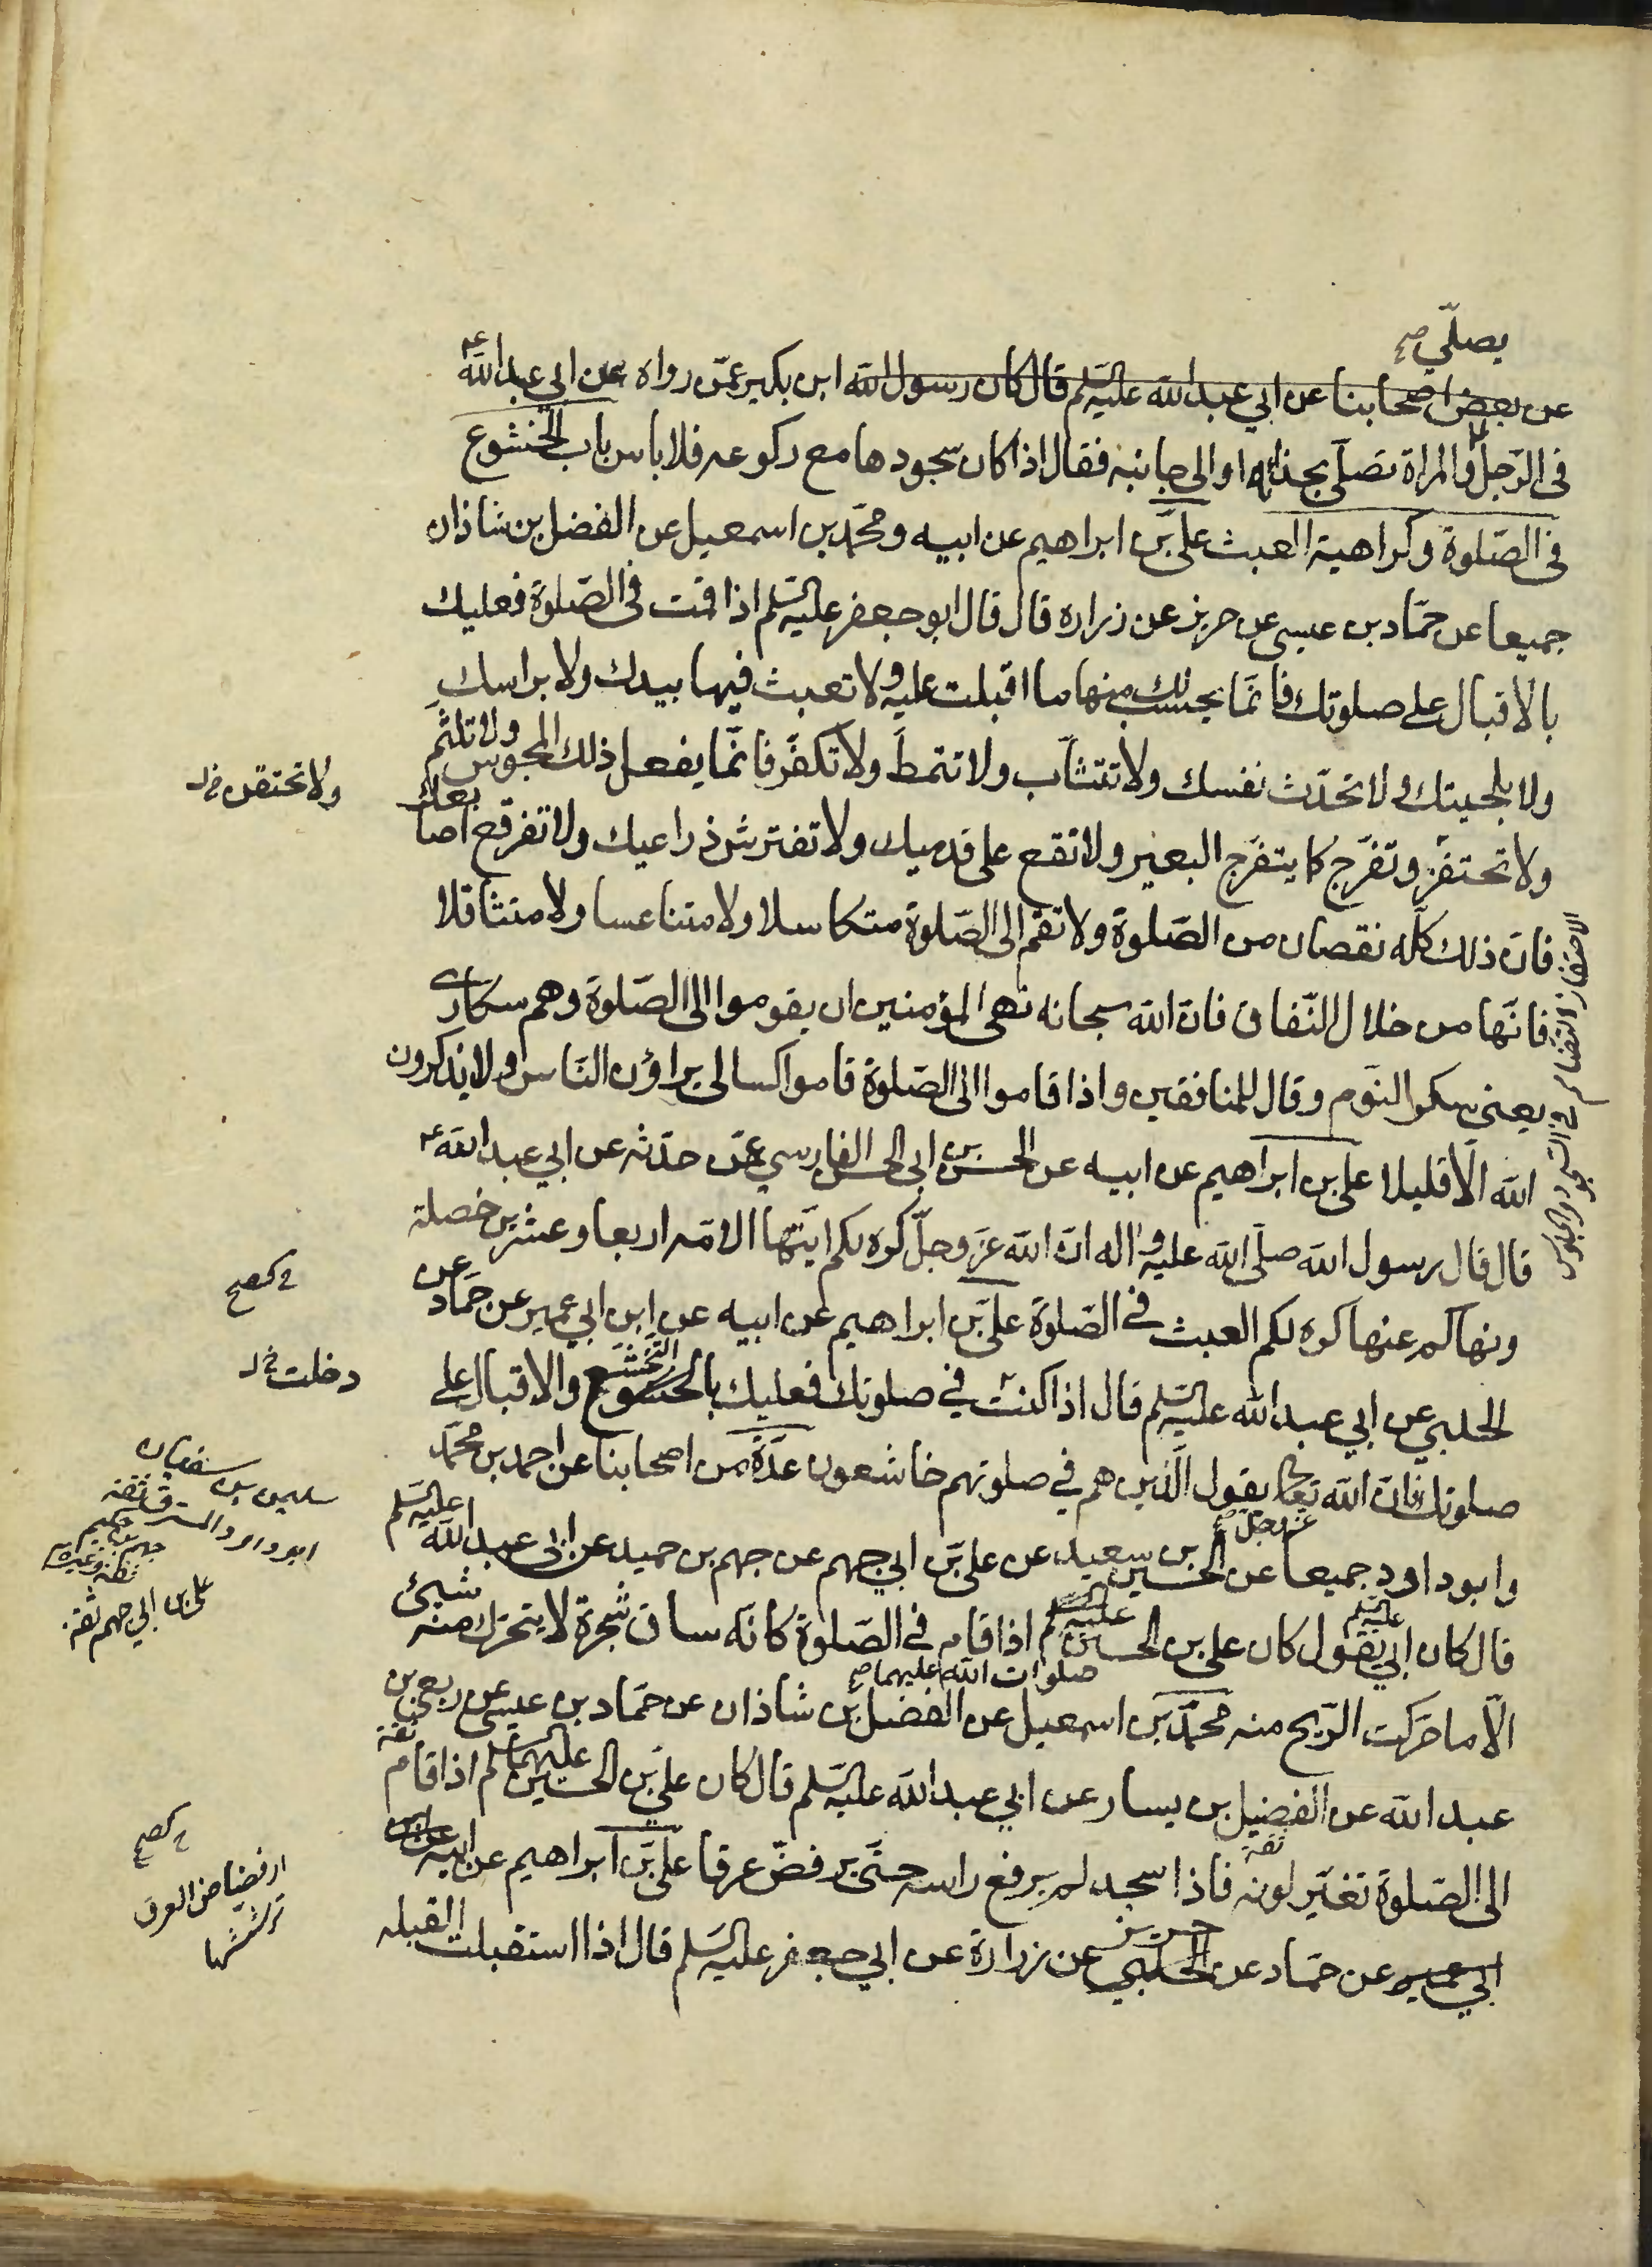 يصلّي صح
عن بعض اصحابنا عن ابي عبد الله عليه السلم قال كان رسول الله ابن بكير عمّن رواه عن ابي عبد الله ع
في الرّجل والمراة تصلّي بحذائه او الى جانبه فقال اذا كان سجودها مع ركوعه فلا باس باب الخشوع
في الصّلوة وكراهية العبث علي بن ابراهيم عن ابيه ومحمّد بن اسمعيل عن الفضل بن شاذان
جميعا عن حمّاد بن عيسى عن حريز عن زراره قال قال ابو جعفر عليه السلم اذا قمت في الصّلوة فعليك
بالاقبال على صلوتك فانّما يحسب لك منها ما اقبلت عليه ولا تعبث فيها بيدك ولا براسك
ولا بلحيتك ولا تحدّث نفسك ولا تتثاّب ولا تتمطّ ولا تكفّر فانّما يفعل ذلك المجوس ولا تلثّم
ولا تحتقن خ ل
ولا تحتفز وتفرّج كما يتفرّج البعير ولا تقع على قدميك ولا تفترش ذراعيك ولا تفرقع اصابعك
فان ذلك كلّه نقصان من الصّلوة ولا تقم الى الصّلوة متكاسلا ولا متناعسا ولا متثاقلا
فانّها من خلال النّفاق فانّ الله سبحانه نهى المؤمنين ان يقوموا الى الصّلوة وهم سكارى
يعني سكر النّوم وقال للمنافقين واذا قاموا الى الصّلوة قاموا كسالى يراؤن النّاس ولا يذكرون
الاحتفاز التضام في السجود والجلوس
الله الّا قليلا علي بن ابراهيم عن ابيه عن الحسن بن ابي الحسن الفارسي عمّن حدّثه عن ابي عبد الله ع
قال قال رسول الله صلّى الله عليه واله انّ الله عزّ وجلّ كره لكم ايّتها الامّه اربعا وعشرين خصلة
ونهاكم عنها كره لكم العبث في الصّلوة علي بن ابراهيم عن ابيه عن ابن ابي عمير عن حمّاد عن
الحلبي عن ابي عبد الله عليه السلم قال اذا كنت في صلوتك فعليك بالخشوع التخشّع والاقبال على
دخلت خ ل
صلوتك فانّ الله تعالى يقول الّذين هم في صلوتهم خاشعون عدّة من اصحابنا عن احمد بن محمّد
عزّ وجلّ
وابو داود جميعا عن الحسين بن سعيد عن علي بن ابي جهم عن جهم بن حميد عن ابي عبد الله عليه السلم
سليمن بن سفيان
ابو داود المسترق ثقة
علي بن ابي جهم ثقة
قال كان ابي عليه السلم يقول كان علي بن الحسين اذا قام في الصّلوة كانّه ساق شجرة لا يتحرّك منه شيئ
صلوات الله عليهما صح
الّا ما حرّكت الرّيح منه محمّد بن اسمعيل عن الفضل بن شاذان عن حمّاد بن عيسى عن ربعي بن
عبد الله عن الفضيل بن يسار عن ابي عبد الله عليه السلم قال كان علي بن الحسين عليهما السلم اذا قام
الى الصّلوة تغيّر لونه فاذا سجد لم يرفع راسه حتّى يرفضّ عرقا علي بن ابراهيم عن ابيه عن ابن
ارفضاض العرق
ترشّشها
ابي عمير عن حمّاد عن الحلبي حريز عن زرارة عن ابي جعفر عليه السلم قال اذا استقبلت القبله